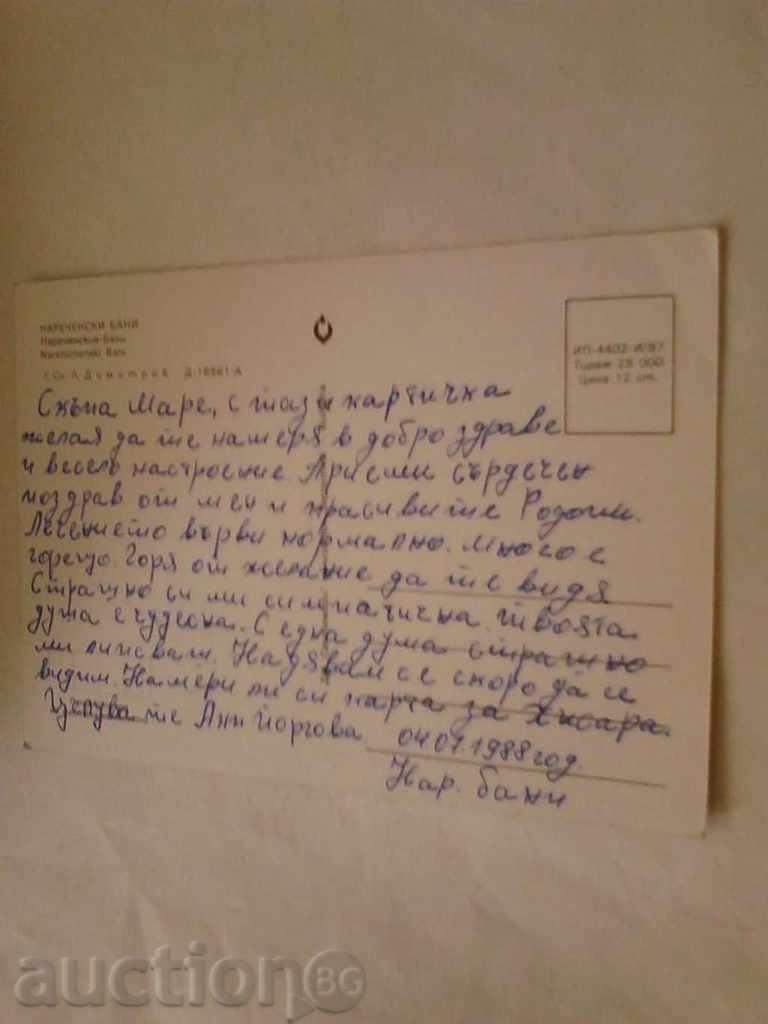 НАРЕЧЕНСКИ БАНИ
Нареченские-Бани
Naretschenski Bani
Л. Димитров Д-18561-А
ИП-4402-И/87
Тираж 25 000
Цена 12 ст.
Скъпа Маре, с тази картичка
желая да те намеря в добро здраве
и весело настроение. Приеми сърдечен
поздрав от мен и красивите Родопи.
Лечението върви нормално. Много е
горещо. Горя от желание да те видя
Страшно си ми симпатична. твоята
душа е чудесна. С една дума страшно
ми липсваш. Надявам се скоро да се
видим. Намери ли си карта за Хисаря.
Целува те Ани Йоргова 04.07.1988 год.
Нар. бани
auctionBG